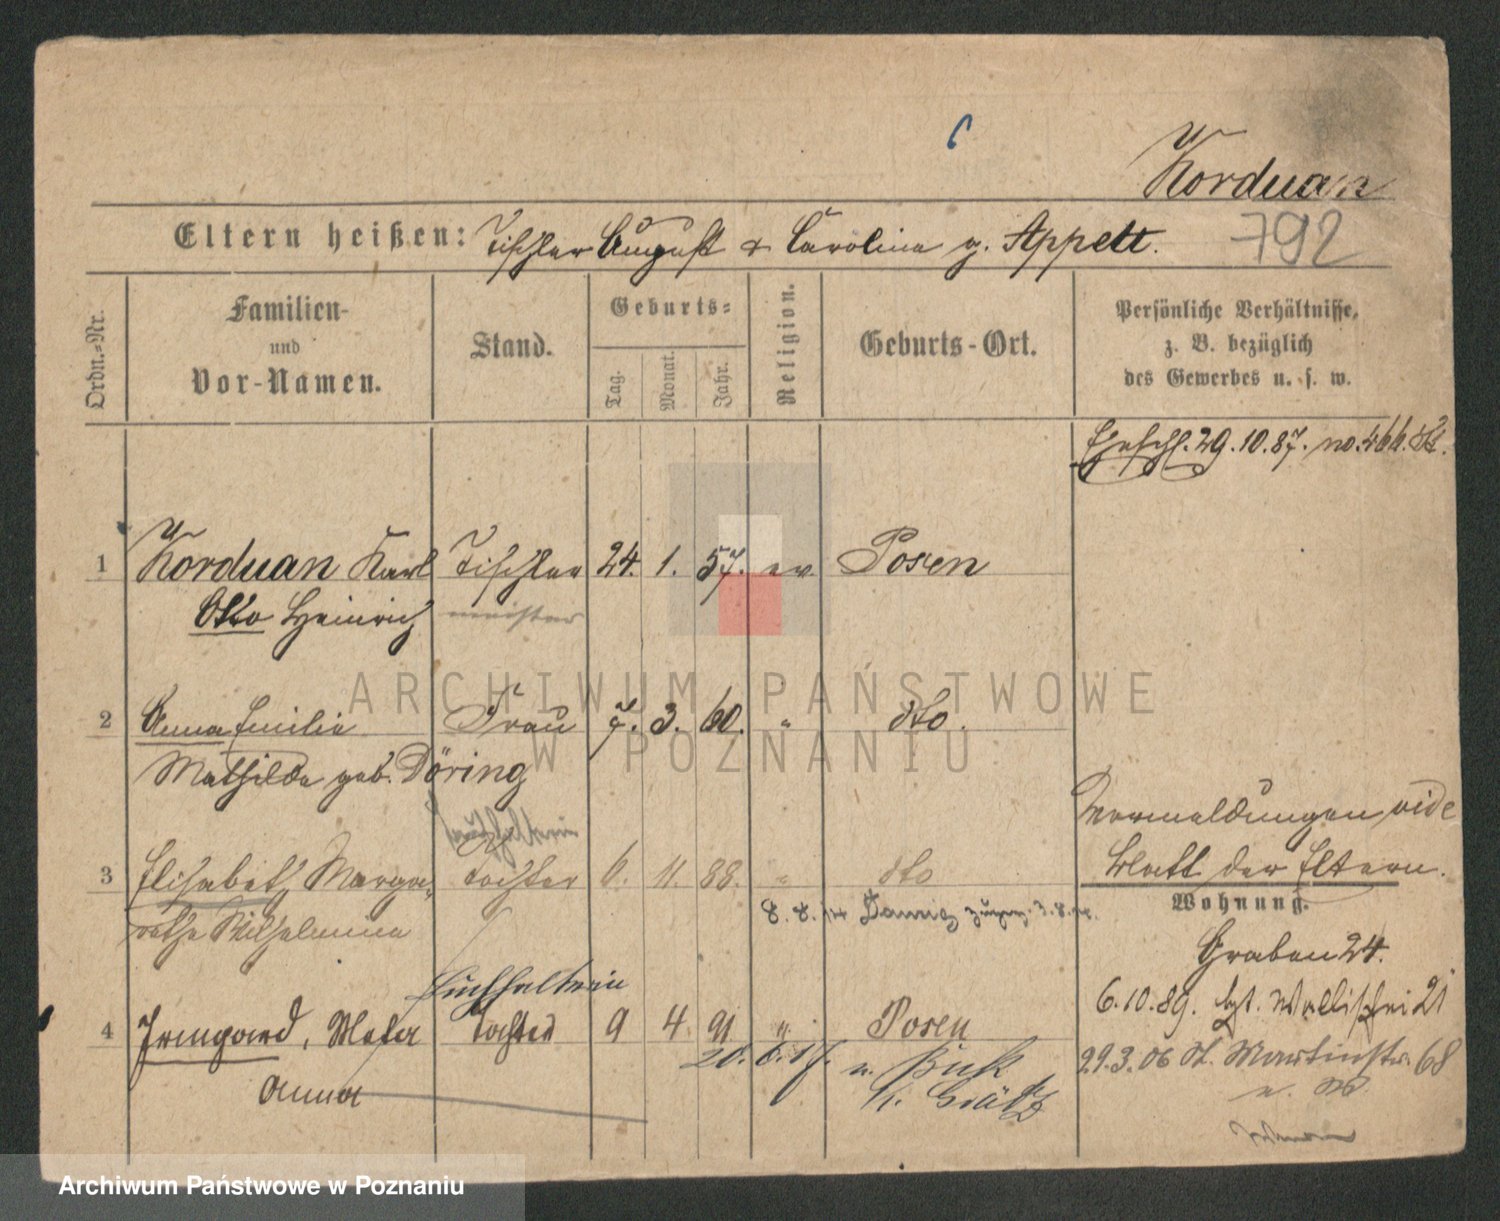 Korduan
Eltern heißen: Tischler August & Carolina g. Appelt.
792
Ordn.-Nr.
Familien-
und
Vor-Namen.
Stand.
Geburts-
Tag.
Monat.
Jahr.
Religion.
Geburts-Ort.
Persönliche Verhältnisse,
z. B. bezüglich
des Gewerbes u. s. w.
Eheschl. 29.10.87. no. 466.
1 Korduan Karl Tischler 24. 1. 57. ev Posen
Otto Heinrich meister
2 Anna Emilie Frau 7. 3. 60. " dto.
Mathilde geb. Döring
Vermeldungen vide
Blatt der Eltern.
Buchhalterin
3 Elisabeth Marga- Tochter 6. 11. 88. " dto
rethe Wilhelmine
8. 8. 14 Danzig 3. 8. 14.
Wohnung.
Graben 24.
6.10.89. Wallischei 21
Buchhalterin
4 Irmgard, Meta Tochter 9 4 91 " Posen
Anna
20. 6. 17. n. Buk
K. Grätz
29.3.06 St. Martinstr. 68
Archiwum Państwowe
w Poznaniu
Archiwum Państwowe w Poznaniu